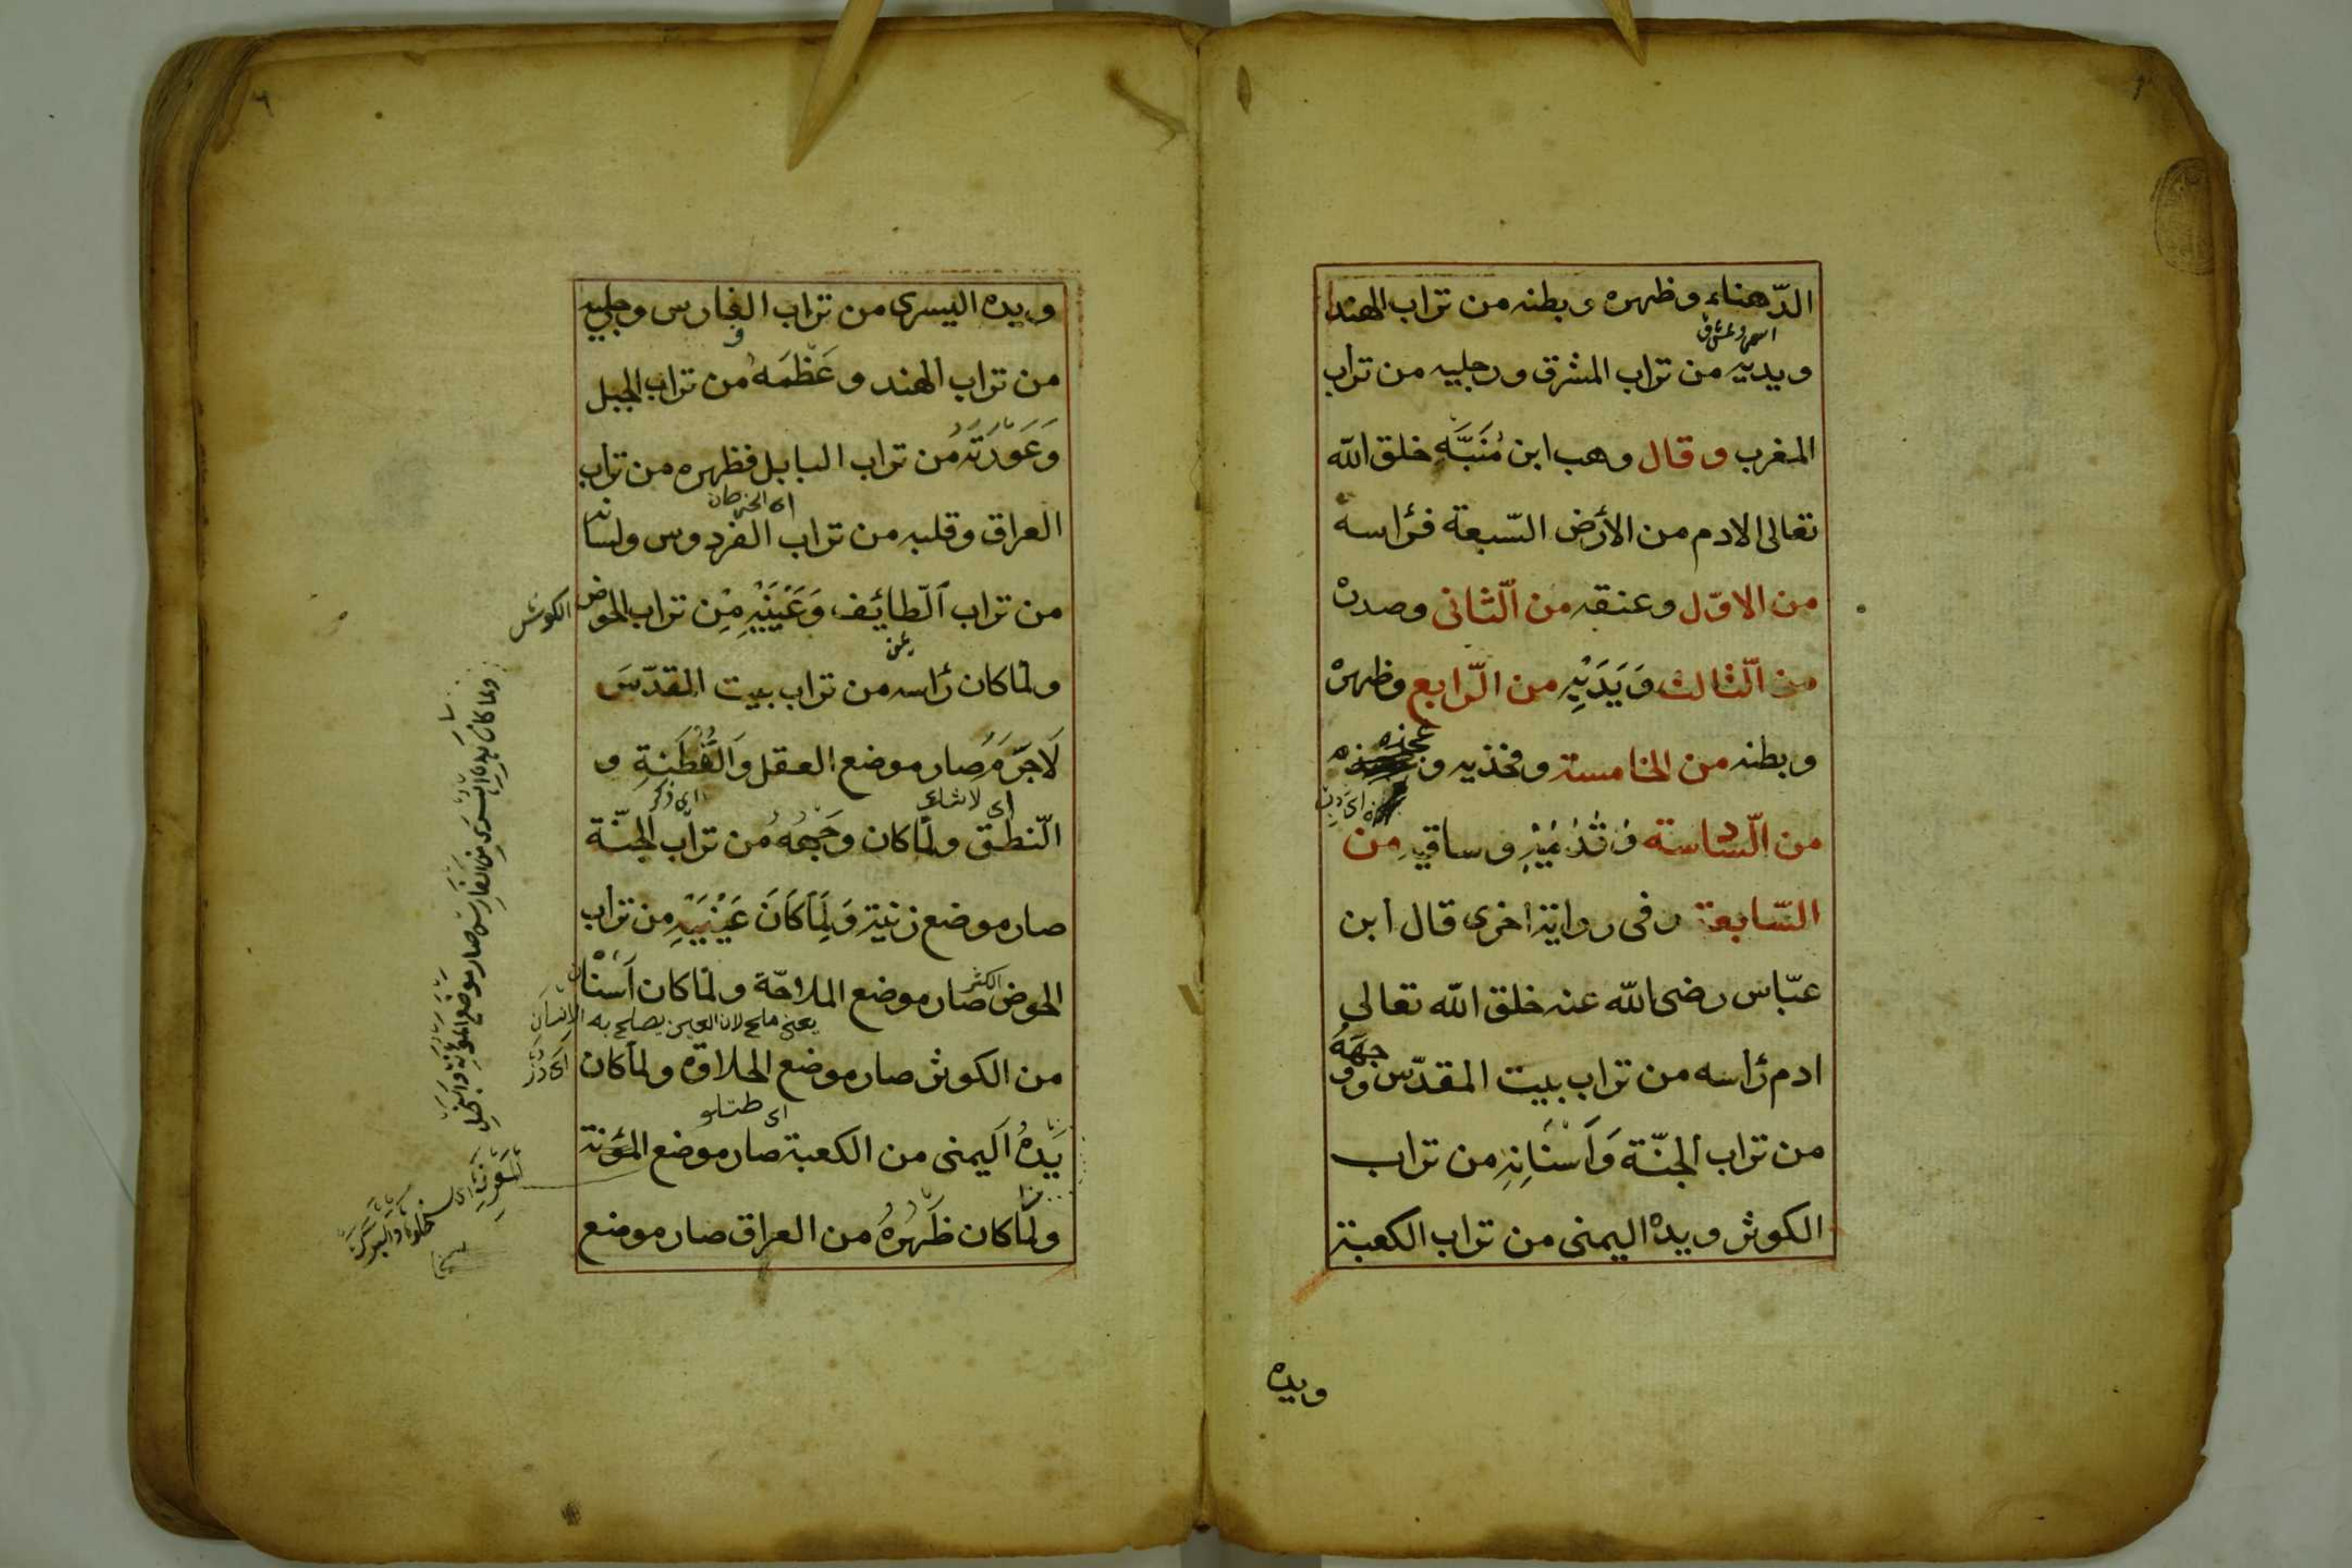 الدّهناء وظهره وبطنه من تراب الهند
ويديه من تراب المشرق ورجليه من تراب
المغرب وقال وهب ابن مُنَبَّه خلق الله
تعالى الادم من الأرض السّبعة فرٔاسه
من الاوّل وعنقه من الثّانى وصدره
من الثّالث وَيَدَيْهِ من الرّابع وظهره
وبطنه من الخامسة وفخذيه و عجزه
من السّاسة وَقَدَمَيْهِ وساقيه من
السّابعة وفى رواية اخرى قال ابن
عبّاس رضى الله عنه خلق الله تعالى
ادم رٔاسه من تراب بيت المقدّس ووجهَهُ
من تراب الجنّة وَاَسْنَانِهِ من تراب
الكوثر ويده اليمنى من تراب الكعبة
ويده
٦
ويده اليسرى من تراب الفارس ورجليه
من تراب الهند وعَظْمَهُ من تراب الجبل
وَعَوْرَتَهُ من تراب البابل فظهره من تراب
العراق وقلبه من تراب الفردوس ولسانه
من تراب الطّائف وَعَيْنَيْهِ مِن تراب الحوض
الكوثر
ولمّا كان رٔاسه من تراب بيت المقدّسَ
لَاجَرَمَ صار موضع العقل وَالْفِطْنَةِ و
النّطق ولمّا كان وَجْهُهُ من تراب الجنّة
صار موضع زنية وَلَمَّا كَانَ عَيْنَيْهِ من تراب
الحوض صار موضع الملاحّة ولمّا كان اَسْنَان
يعنى ملح لان العين يصلح به الانسان
من الكوثر صار موضع الحلاوة ولمّا كان
يَدُهُ اليمنى من الكعبة صار موضع المؤنة
ولمّا كان ظَهْرُهُ من العراق صار موضع